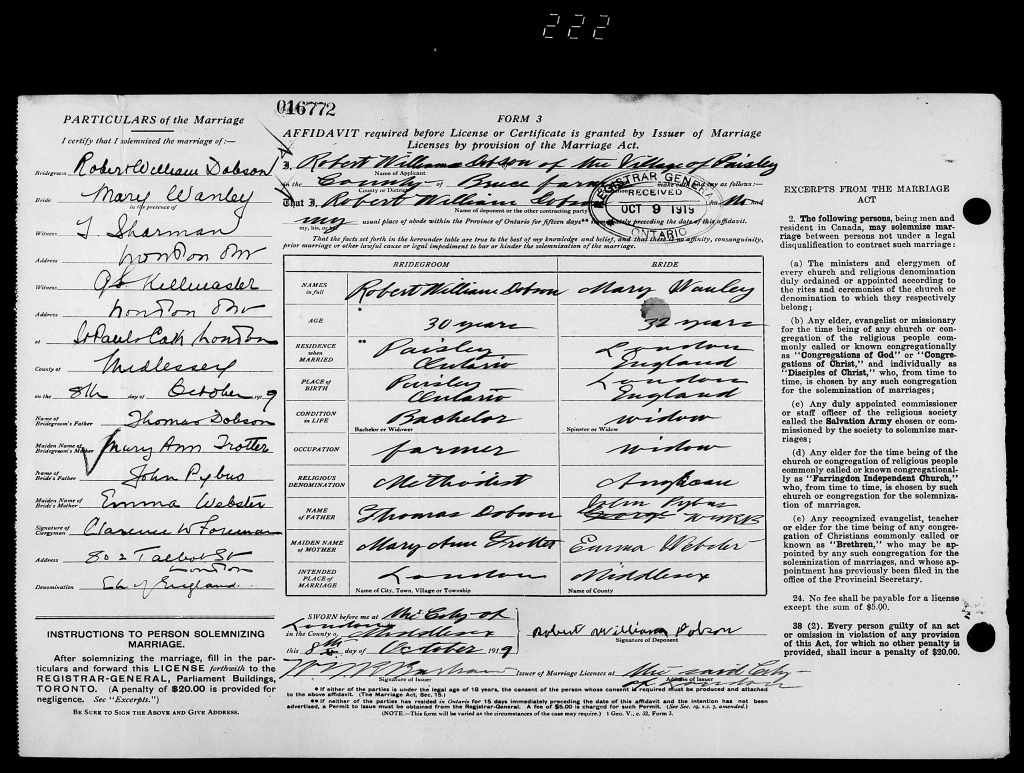 222
016772
PARTICULARS of the Marriage
I certify that I solemnized the marriage of:—
Bridegroom Robert William Dobson
Bride Mary Wanley
in the presence of
Witness T. Sharman
Address London Ont
Witness Kellmaster
Address London Ont
at St Pauls Cath London
County of Middlesex
on the 8th day of October 1919
Name of Bridegroom's Father Thomas Dobson
Maiden Name of Bridegroom's Mother Mary Ann Trotter
Name of Bride's Father John Pybus
Maiden Name of Bride's Mother Emma Webster
Signature of Clergyman Clarence W Foreman
Address 802 Talbot St
London
Denomination Ch of England
INSTRUCTIONS TO PERSON SOLEMNIZING
MARRIAGE.
After solemnizing the marriage, fill in the par-
ticulars and forward this LICENSE forthwith to the
REGISTRAR-GENERAL, Parliament Buildings,
TORONTO. (A penalty of $20.00 is provided for
negligence. See "Excerpts.")
BE SURE TO SIGN THE ABOVE AND GIVE ADDRESS.
FORM 3
AFFIDAVIT required before License or Certificate is granted by Issuer of Marriage
Licenses by provision of the Marriage Act.
I, Robert William Dobson of the Village of Paisley
Name of Applicant
in the County of Bruce farmer make oath and say as follows:—
County or District
That I, Robert William Dobson
Name of deponent or the other contracting party
my usual place of abode within the Province of Ontario for fifteen days** immediately preceding the date of this affidavit.
my, his, or her
REGISTRAR GENERAL
RECEIVED
OCT 9 1919
ONTARIO
That the facts set forth in the hereunder table are true to the best of my knowledge and belief, and that there is no affinity, consanguinity,
prior marriage or other lawful cause or legal impediment to bar or hinder the solemnization of the marriage.
BRIDEGROOM BRIDE
NAMES in full Robert William Dobson Mary Wanley
AGE * 30 years 32 years
RESIDENCE when MARRIED ** Paisley Ontario London England
PLACE OF BIRTH Paisley Ontario London England
CONDITION in LIFE Bachelor widow
Bachelor or Widower Spinster or Widow
OCCUPATION farmer widow
RELIGIOUS DENOMINATION Methodist Anglican
NAME OF FATHER Thomas Dobson John Pybus
MAIDEN NAME OF MOTHER Mary Ann Trotter Emma Webster
INTENDED PLACE OF MARRIAGE London Middlesex
Name of City, Town, Village or Township Name of County
SWORN before me at the City of
London
in the County of Middlesex
this 8th day of October 1919
Robert William Dobson
Signature of Deponent
Signature of Issuer
Issuer of Marriage Licenses at the said City
of London
Address of Issuer
* If either of the parties is under the legal age of 18 years, the consent of the person whose consent is required must be produced and attached
to the above affidavit. (The Marriage Act, Sec. 15.)
** If neither of the parties has resided in Ontario for 15 days immediately preceding the date of this affidavit and the intention has not been
advertised, a Permit to Issue must be obtained from the Registrar-General. A fee of $5.00 is charged for such Permit. (See Sec. 19, s.s. 2, amended.)
(NOTE.—This form will be varied as the circumstances of the case may require.) 1 Geo. V., c. 32, Form 3.
EXCERPTS FROM THE MARRIAGE
ACT
2. The following persons, being men and
resident in Canada, may solemnize mar-
riage between persons not under a legal
disqualification to contract such marriage:
(a) The ministers and clergymen of
every church and religious denomination
duly ordained or appointed according to
the rites and ceremonies of the church or
denomination to which they respectively
belong;
(b) Any elder, evangelist or missionary
for the time being of any church or con-
gregation of the religious people com-
monly called or known congregationally
as "Congregations of God" or "Congre-
gations of Christ," and individually as
"Disciples of Christ," who, from time to
time, is chosen by any such congregation
for the solemnization of marriages;
(c) Any duly appointed commissioner
or staff officer of the religious society
called the Salvation Army chosen or com-
missioned by the society to solemnize mar-
riages;
(d) Any elder for the time being of the
church or congregation of religious people
commonly called or known congregational-
ly as "Farringdon Independent Church,"
who, from time to time, is chosen by such
church or congregation for the solemniza-
tion of marriages.
(e) Any recognized evangelist, teacher
or elder for the time being of any con-
gregation of Christians commonly called or
known as "Brethren," who may be ap-
pointed by any such congregation for the
solemnization of marriages, and whose ap-
pointment has previously been filed in the
office of the Provincial Secretary.
24. No fee shall be payable for a license
except the sum of $5.00.
38 (2). Every person guilty of an act
or omission in violation of any provision
of this Act, for which no other penalty is
provided, shall incur a penalty of $20.00.